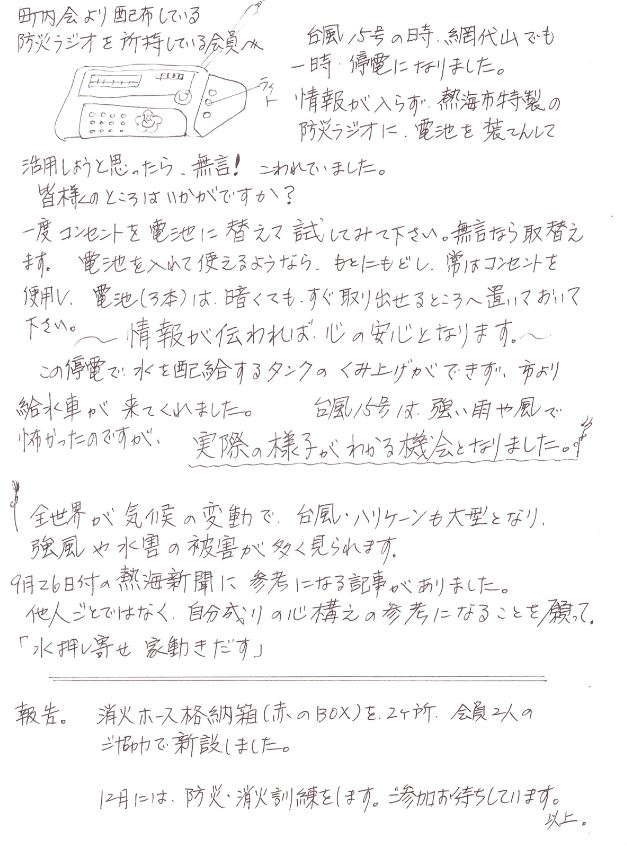 町内会より配布している
防災ラジオを所持している会員へ
ライト
台風15号の時、網代山でも
一時 停電になりました。
情報が入らず、熱海市特製の
防災ラジオに、電池を装てんして
活用しようと思ったら、無言! こわれていました。
皆様のところはいかがですか?
一度コンセントを電池に替えて試してみて下さい。無言なら取替え
ます。 電池を入れて使えるようなら、もとにもどし、常はコンセントを
使用し、電池(3本)は、暗くても、すぐ取り出せるところへ置いておいて
下さい。
〜情報が伝われば、心の安心となります。〜
この停電で、水を配給するタンクのくみ上げができず、市より
給水車が来てくれました。 台風15号は、強い雨や風で
怖かったのですが、実際の様子がわかる機会となりました。
全世界が気候の変動で、台風・ハリケーンも大型となり、
強風や水害の被害が多く見られます。
9月26日付の熱海新聞に参考になる記事がありました。
他人ごとではなく、自分成りの心構えの参考になることを願って、
「水押し寄せ 家動きだす」
報告。 消火ホース格納箱(赤のBOX)を、2ヶ所、会員2人の
ご協力で新設しました。
12月には、防災・消火訓練をします。ご参加お待ちしています。
以上。